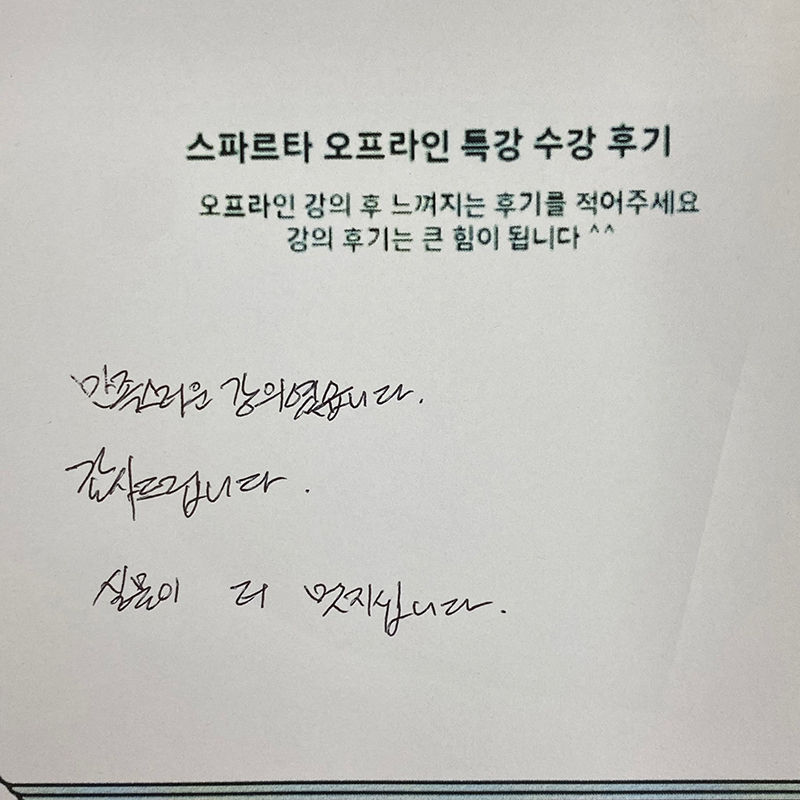 스파르타 오프라인 특강 수강 후기
오프라인 강의 후 느껴지는 후기를 적어주세요
강의 후기는 큰 힘이 됩니다 ^^
만족스러운 강의였습니다.
감사드립니다.
실물이 더 멋지십니다.